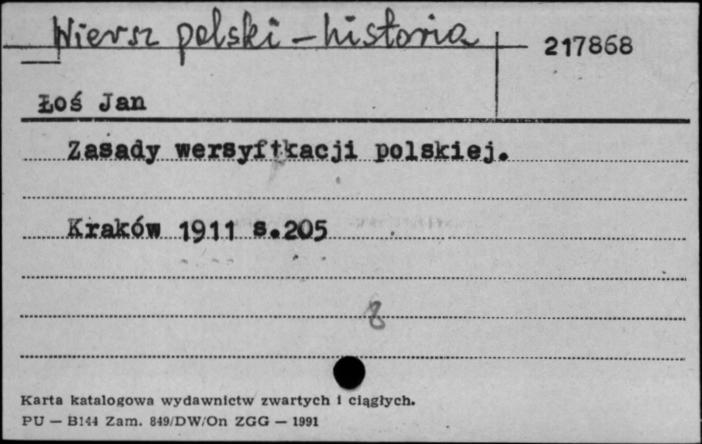 Wiersz polski - historia
217868
Łoś Jan
Zasady wersyftkacji polskiej.
Kraków 1911 s.205
8
Karta katalogowa wydawnictw zwartych i ciągłych.
PU — B144 Zam. 849/DW/On ZGG — 1991